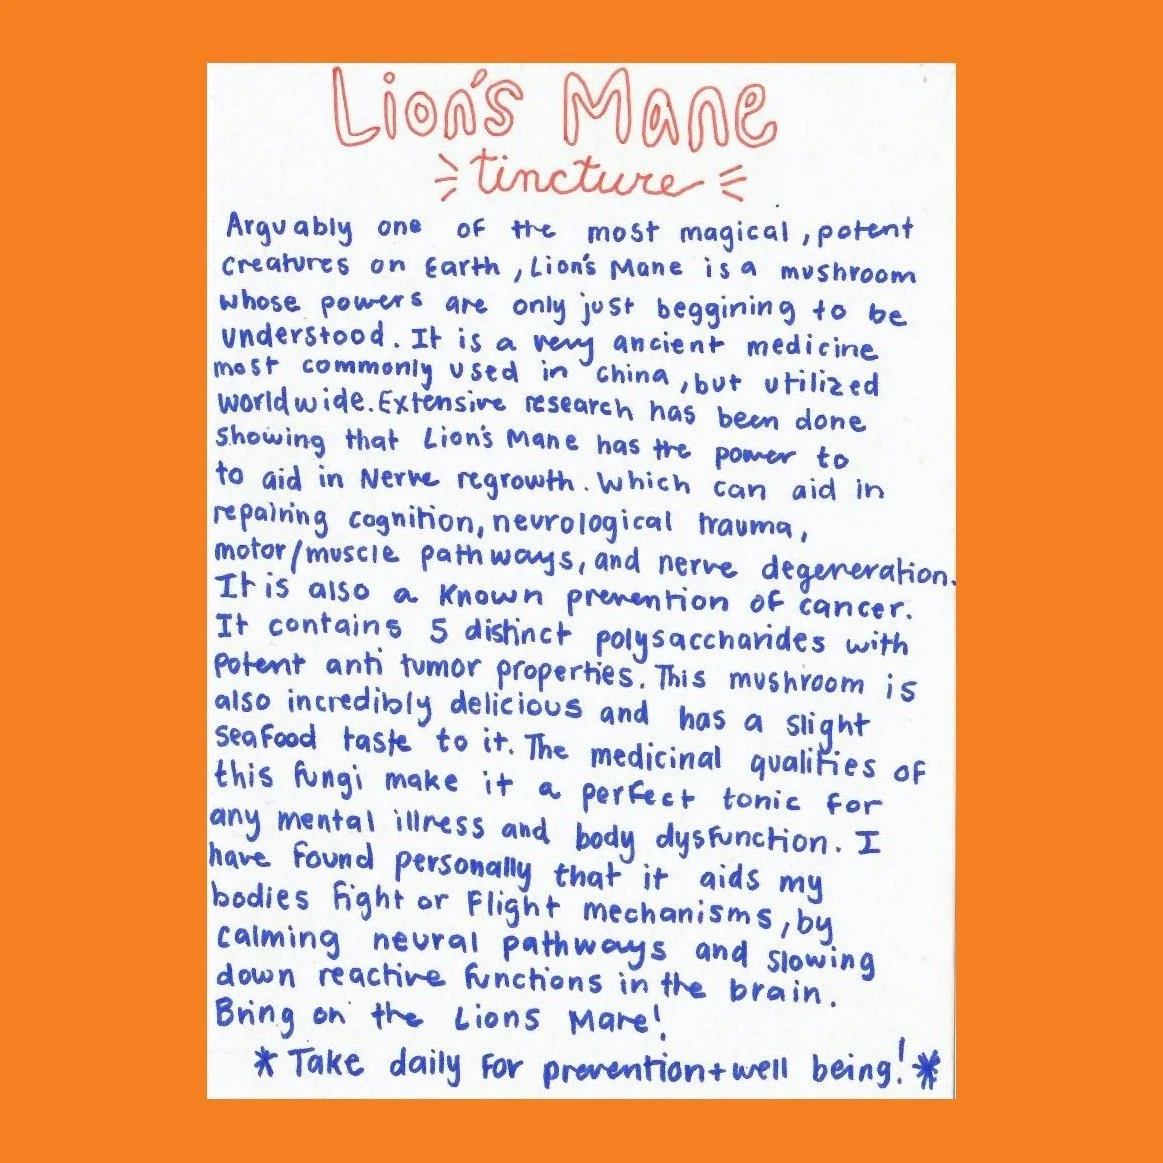 Lion's Mane
tincture
Arguably one of the most magical, potent
creatures on Earth, Lion's Mane is a mushroom
whose powers are only just beggining to be
understood. It is a very ancient medicine
most commonly used in China, but utilized
worldwide. Extensive research has been done
showing that Lion's Mane has the power to
to aid in Nerve regrowth. Which can aid in
repairing cognition, neurological trauma,
motor/muscle pathways, and nerve degeneration.
It is also a known prevention of cancer.
It contains 5 distinct polysaccharides with
potent anti tumor properties. This mushroom is
also incredibly delicious and has a slight
seafood taste to it. The medicinal qualities of
this fungi make it a perfect tonic for
any mental illness and body dysfunction. I
have found personally that it aids my
bodies fight or flight mechanisms, by
calming neural pathways and slowing
down reactive functions in the brain.
Bring on the Lions Mane!
* Take daily for prevention + well being! *